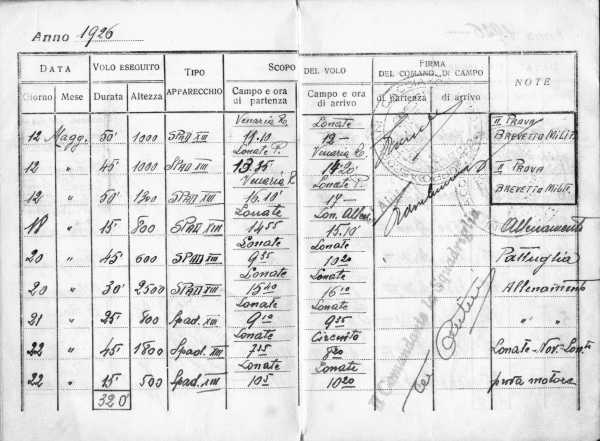 Anno 1926
DATA VOLO ESEGUITO TIPO APPARECCHIO SCOPO DEL VOLO FIRMA DEL COMAND. DI CAMPO NOTE
Giorno Mese Durata Altezza Campo e ora di partenza Campo e ora di arrivo di partenza di arrivo
12 Magg. 50' 1000 SPAD XIII Venaria R. 11.10 Lonate 12 II PROVA BREVETTO MILIT.
12 " 45' 1000 SPAD XIII Lonate P. 13.35 Venaria R. 14.20' II PROVA
12 " 50' 1300 SPAD XIII Venaria R. 16.10' Lonate P. 17 BREVETTO MILIT.
18 " 15' 800 SPAD XIII Lonate 14.55 Lon. 15.10' Allenamento
20 " 45' 600 SPAD XIII Lonate 9.35 Lonate 10.20 Pattuglia
20 " 30' 2500 SPAD XIII Lonate 15.40 Lonate 16.10 Allenamento
21 " 25' 800 Spad. XIII Lonate 9.10 Lonate 9.35 " "
22 " 45' 1800 Spad. XIII Lonate 7.35 Circuito 8.20 Lonate-Nov.-Lon.te
22 " 15' 500 Spad. XIII Lonate 10.5 Lonate 10.20 prova motore
320'
Il Comandante Squadriglia